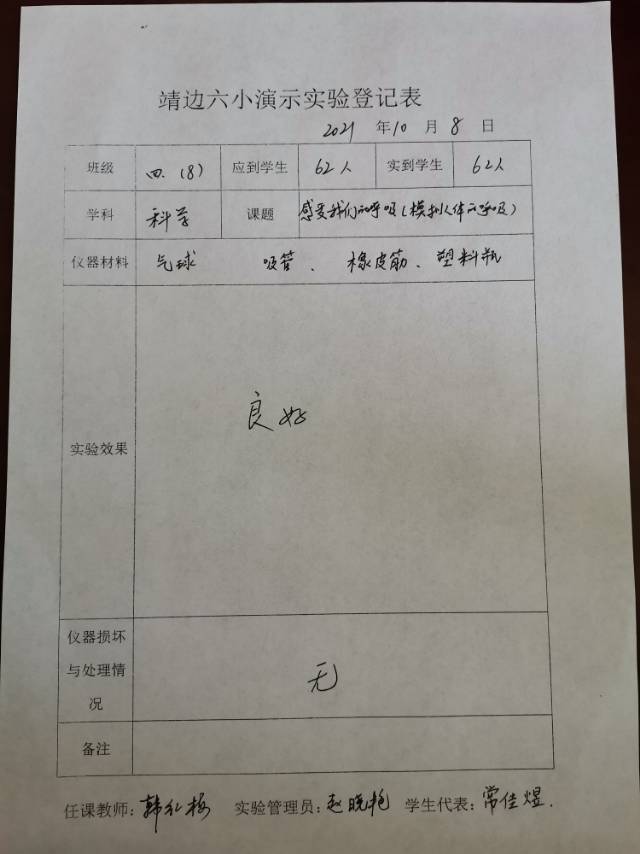 靖边六小演示实验登记表
2021 年 10 月 8 日
班级 四.(8) 应到学生 62人 实到学生 62人
学科 科学 课题 感受我们的呼吸(模拟人体的呼吸)
仪器材料 气球 吸管、橡皮筋、塑料瓶
实验效果 良好
仪器损坏
与处理情 无
况
备注
任课教师:韩 梅 实验管理员:赵晓艳 学生代表:常佳煜.